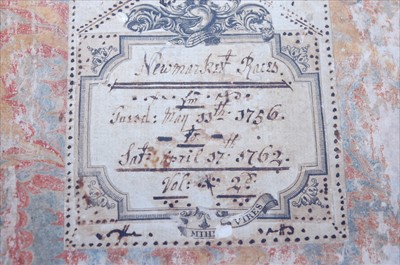 Newmarket Races.
fm
Tuesd: May 11th. 1756.
to
Satr: April 17th. 1762.
Vol: 2d.
MIHI VIRES